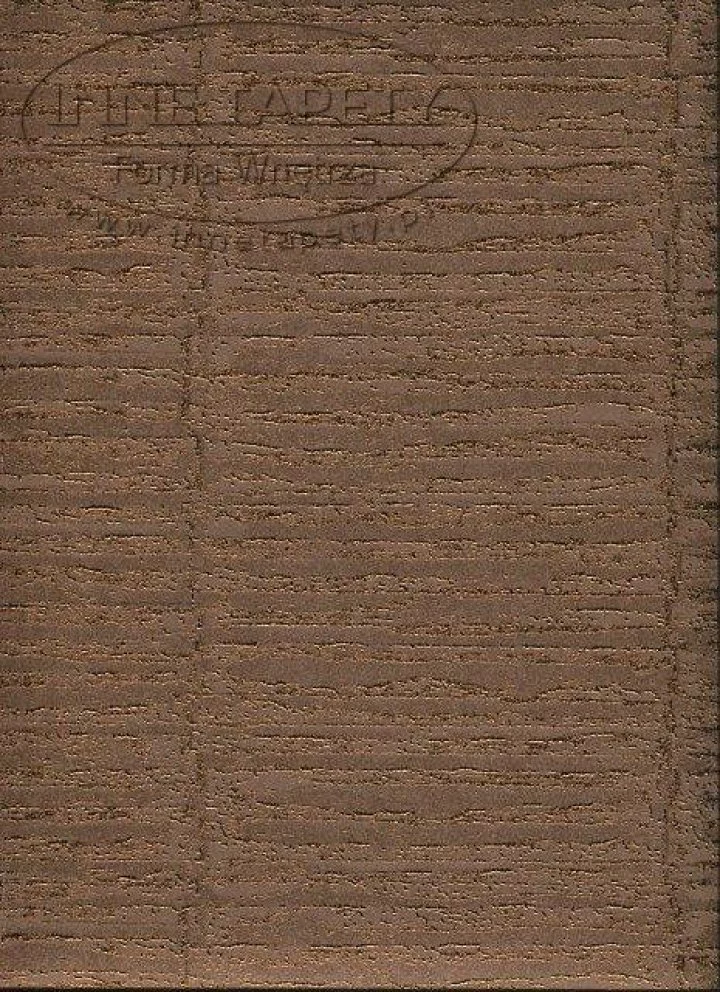 INNE TAPETY
Forma Wnętrza
www.innetapety.pl